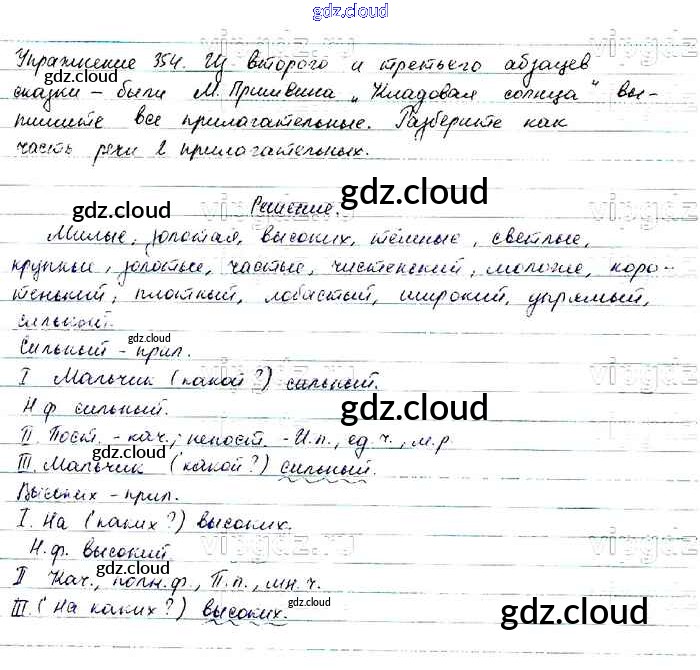 gdz.cloud
Упражнение 354. Из второго и третьего абзацев
gdz.cloud
сказки – были М. Пришвина „Кладовая солнца" вы-
пишите все прилагательные. Разберите как
часть речи 2 прилагательных.
gdz.cloud
gdz.cloud
Решение.
Милые, золотая, высоких, тёмные, светлые,
крупные, золотые, частые, чистенский, мологие, коро-
тенький, плотный, лобастый, широкий, упрямый,
сильный.
gdz.cloud
Сильный – прил.
I Мальчик (какой?) сильный.
Н.ф. сильный.
gdz.cloud
II. Пост. – кач.; непост. – И.п., ед.ч., м.р.
gdz.cloud
III. Мальчик (какой?) сильный.
Высоких – прил.
I. На (каких?) высоких.
Н.ф. высокий.
vipgdz.ru
II Кач., полн.ф., П.п., мн.ч.
gdz.cloud
III. (На каких?) высоких.
gdz.cloud
gdz.cloud